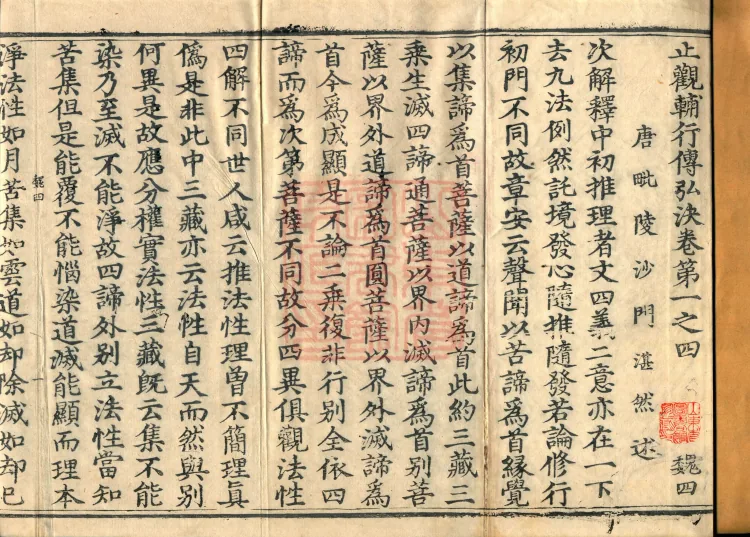 止觀輔行傳弘決卷第一之四
魏四
唐毗陵沙門湛然述
次解釋中初推理者文四義二意亦在一下
去九法例然託境發心隨推隨發若論修行
初門不同故章安云聲聞以苦諦爲首緣覺
以集諦爲首菩薩以道諦爲首此約三藏三
乘生滅四諦通菩薩以界內滅諦爲首別菩
薩以界外道諦爲首圓菩薩以界外滅諦爲
首今爲成顯是不論二乘復非行別全依四
諦而爲次第菩薩不同故分四異俱觀法性
四解不同世人咸云推法性理曾不簡理眞
僞是非此中三藏亦云法性自天而然與別
何異是故應分權實法性三藏旣云集不能
染乃至滅不能淨故四諦外別立法性當知
苦集但是能覆不能惱染道滅能顯而理本
魏四
一
淨法性如月苦集如雲道如却除滅如却已